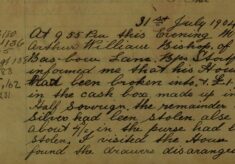 31st July 1904
At 9.55 Pm this Evening Mr
Arthur William Bishop, of
Lane, Bps Stort
informed me that his House
Had been broken into &
in the cash box made up in
Half Sovereign, the remainder
Silver had been stolen, also
about 4/- in the purse had b
stolen, I visited the House
found the drawers disarranged